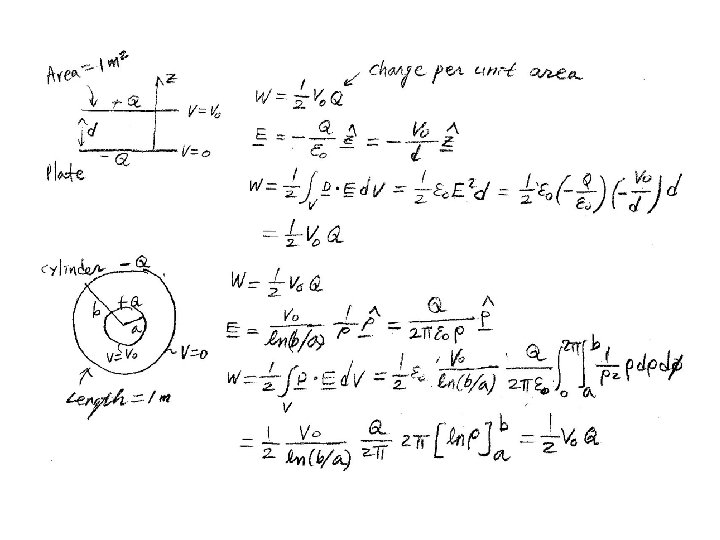 Area = 1 m²
z
+Q
V = V₀
d
-Q
V = 0
Plate
charge per unit area
W = 1/2 V₀Q
E = - Q/ε₀ ẑ = - V₀/d ẑ
W = 1/2 ∫_V D · E dV = 1/2 ε₀E²d = 1/2 ε₀(-Q/ε₀)(-V₀/d)d
= 1/2 V₀Q
cylinder -Q
+Q
b
a
V = V₀
V = 0
Length = 1 m
W = 1/2 V₀Q
E = V₀/ln(b/a) 1/ρ ρ̂ = Q/2πε₀ρ ρ̂
W = 1/2 ∫_V D · E dV = 1/2 ε₀ V₀/ln(b/a) Q/2πε₀ ∫₀^2π ∫_a^b 1/ρ² ρdρdϕ
= 1/2 V₀/ln(b/a) Q/2π 2π[lnρ]_a^b = 1/2 V₀Q